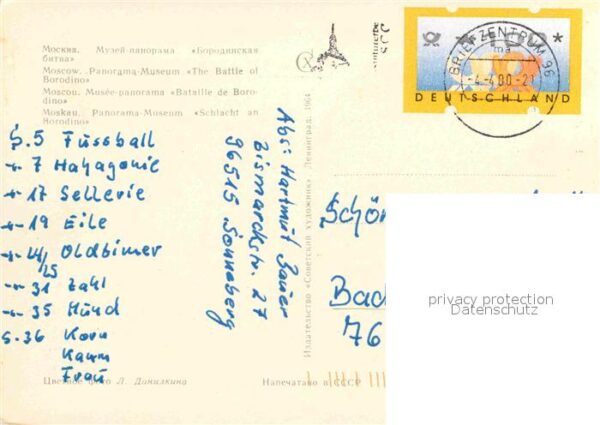 Москва. Музей-панорама «Бородинская
битва»
Moscow. Panorama-Museum «The Battle of
Borodino»
Moscou. Musée-panorama «Bataille de Boro-
dino»
Moskau. Panorama-Museum «Schlacht an
Borodino»
S.5 Fussball
7 Mahagonie
17 Sellerie
19 Eile
24/25 Oldtimer
31 Zahl
35 Hund
S.36 Korn
Kaum
Frau
Цветное фото Л. Данилкина
Напечатано в СССР
Abs: Hartmut Bauer
Bismarckstr. 27
96515 Sonneberg
Издательство «Советский художник», Ленинград, 1964
BRIEFZENTRUM 96
ma
-4.-4.00-21
DEUTSCHLAND
Schön
Bac
76
privacy protection
Datenschutz